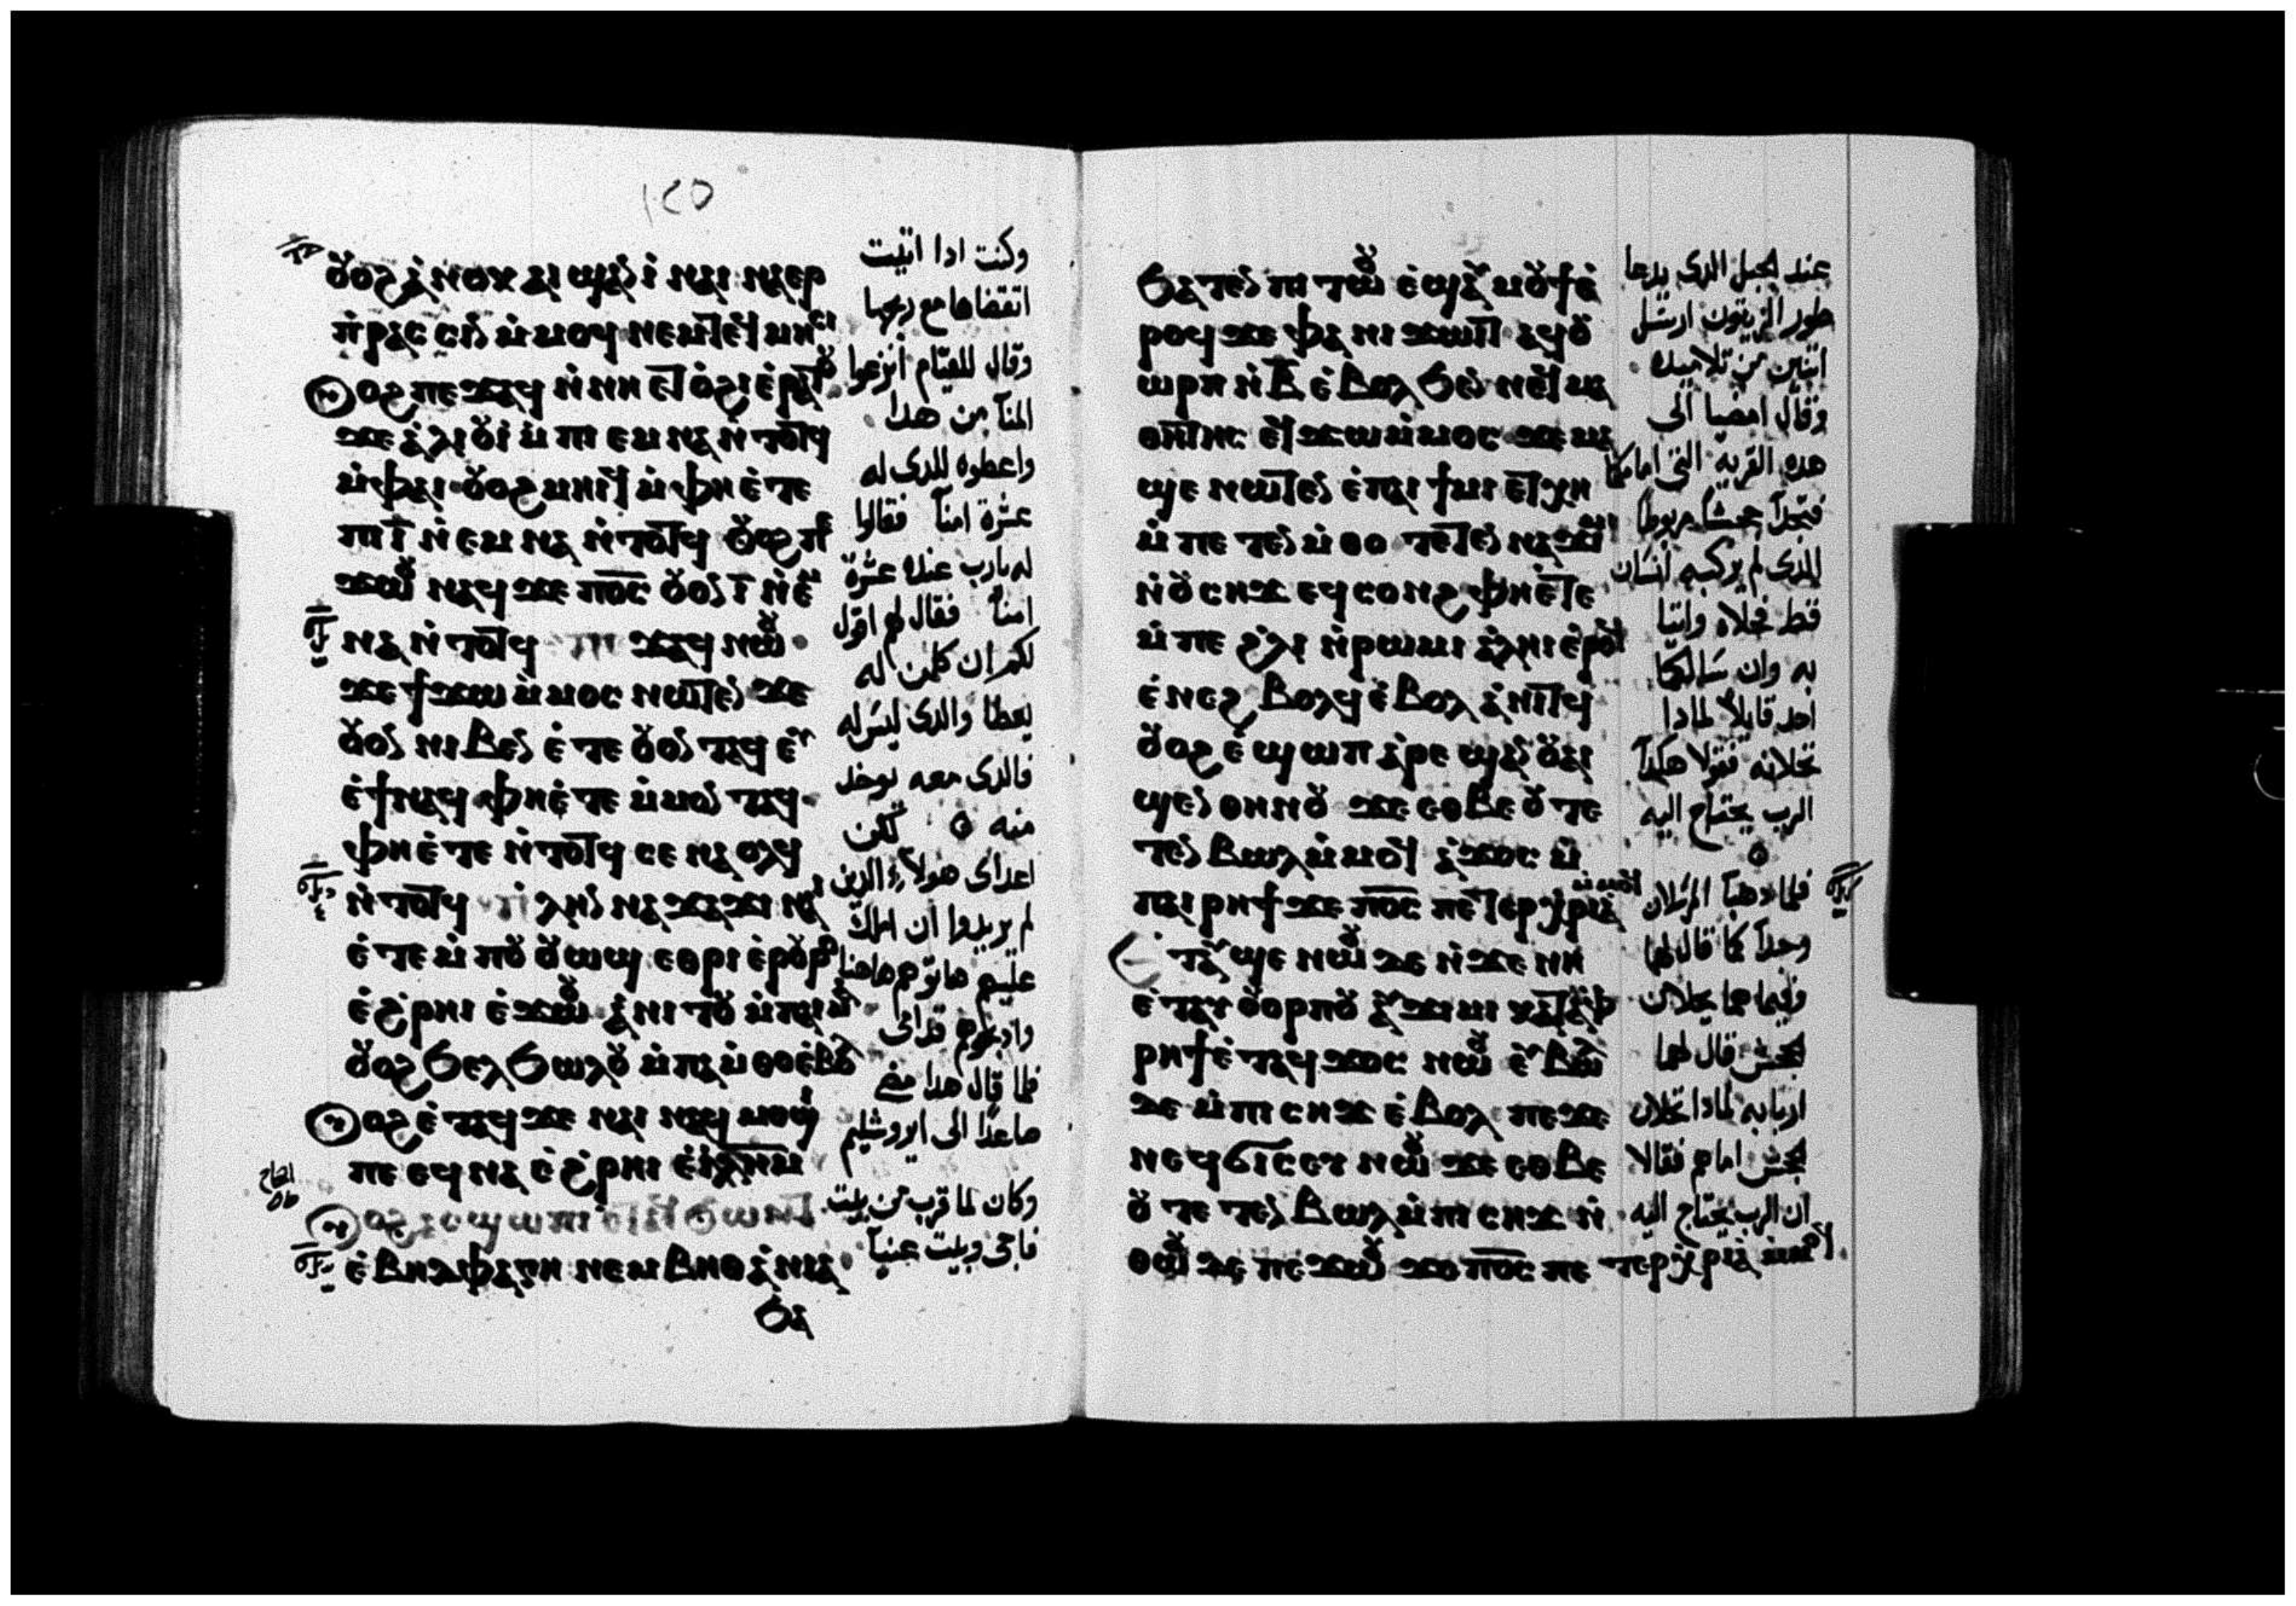 ١٢٥
ⲟⲩⲟϩ ⲁⲛⲟⲕ ⲁⲓϣⲁⲛⲓ ⲛⲁⲓ ⲛⲁⲉⲣ
ⲡⲣⲁⲥⲥⲓⲛ ⲙⲙⲟϥ ⲛⲉⲙ ⲧⲉϥⲙⲏⲥⲓ
ⲟⲩⲟϩ ⲡⲉϫⲁϥ ⲛⲛⲏ ⲉⲧⲟϩⲓ ⲉⲣⲁⲧⲟⲩ
ϫⲉ ⲁⲗⲓⲟⲩⲓ ⲙⲡⲓⲉⲙⲛⲁ ⲛⲧⲟⲧϥ
ⲙⲫⲁⲓ ⲟⲩⲟϩ ⲙⲏⲓϥ ⲙⲫⲏ ⲉⲧⲉ
ⲡⲓⲓ̅ ⲛⲉⲙⲛⲁ ⲛⲧⲟⲧϥ ⲟⲩⲟϩ ⲡⲉ
ϫⲱⲟⲩ ⲛⲁϥ ϫⲉ ⲡ̅ⲟ̅ⲥ̅ ⲟⲩⲟⲛ ⲓ̅ ⲛⲉⲙ
ⲛⲁ ⲛⲧⲟⲧϥ ⲡⲉϫⲁϥ ⲛⲱⲟⲩ
ϫⲉ ϯϫⲱ ⲙⲙⲟⲥ ⲛⲱⲧⲉⲛ ϫⲉ
ⲟⲩⲟⲛ ⲛⲓⲃⲉⲛ ⲉⲧⲉ ⲟⲩⲟⲛ ⲧⲁϥ ⲉⲩ
ⲉϯⲛⲁϥ ⲫⲏ ⲉⲧⲉ ⲙⲙⲟⲛ ⲧⲁϥ
ⲫⲏ ⲉⲧⲉ ⲛⲧⲟⲧϥ ⲥⲉⲛⲁⲟⲗϥ
ⲛⲧⲟⲧϥ ⲡⲗⲏⲛ ⲛⲁϫⲁϫⲓ ⲛⲁⲓ
ⲉⲧⲉ ⲙⲡⲟⲩⲟⲩⲱϣ ⲉⲑⲣⲓⲉⲣⲟⲩⲣⲟ
ⲉϩⲣⲏⲓ ⲉϫⲱⲟⲩ ⲁⲛⲓⲧⲟⲩ ⲙⲡⲁⲓⲙⲁ
ⲟⲩⲟϩ ϧⲉⲗϧⲱⲗⲟⲩ ⲙⲡⲁⲙⲑⲟ ⲉⲃⲟⲗ
ⲟⲩⲟϩ ⲉⲧⲁϥϫⲉ ⲛⲁⲓ ⲛⲁϥⲙⲟϣⲓ
ⲡⲉ ⲉϥⲛⲁ ⲉϩⲣⲏⲓ ⲉⲓ̅ⲗ̅ⲏ̅ⲙ̅
ⲟⲩⲟϩ ⲁⲥϣⲱⲡⲓ ⲉⲧⲁϥϧⲱⲛⲧ
ⲉⲃⲏⲑⲫⲁⲅⲏ ⲛⲉⲙ ⲃⲏⲑⲁⲛⲓⲁ
ϧⲁ
وكنت ادا اتيت
اتقضاها مع ربحها
وقال للقيّام انزعوا
المنآ من هدا
واعطوه للدى له
عشرة امنآ فقالوا
له يارب عنده عشرة
امنآ فقال لهم اقول
لكم ان كلمن له
يعطا والدى ليس له
فالدى معه يوخد
منه لكن
اعداى هولآء الدين
لم يريدوا ان املك
عليهم هاتوهم هاهنا
وادبحوهم قدامى
فلما قال هدا مضى
صاعدًا الى ايروشليم
وكان لما قرب من بيت
فاجى وبيت عنيآ
ϧⲁⲧⲉⲛ ⲡⲓⲧⲱⲟⲩ ⲉϣⲁⲩⲙⲟⲩϯ ⲉ
ⲣⲟϥ ϫⲉ ⲫⲁ ⲛⲓϫⲱⲓⲧ ⲁϥⲟⲩ
ⲱⲣⲡ ⲛⲃ̅ ⲉⲃⲟⲗ ϧⲉⲛ ⲛⲉϥⲙⲁ
ⲑⲏⲧⲏⲥ ⲉϥϫⲱ ⲙⲙⲟⲥ ϫⲉ ⲙⲁ
ϣⲉ ⲛⲱⲧⲉⲛ ⲉⲡⲁⲓϯⲙⲓ ⲉⲧⲭⲏ
ⲙⲡⲉⲧⲉⲛⲙⲑⲟ ⲧⲉⲧⲉⲛⲛⲁϫⲓⲙⲓ
ⲛⲟⲩⲥⲏϫ ⲉϥⲥⲟⲛϩ ⲫⲏ ⲉⲧⲉ
ⲙⲡⲉ ϩⲗⲓ ⲛⲣⲱⲙⲓ ⲁⲗⲏⲓ ⲉⲣⲟϥ
ⲉⲛⲉϩ ⲃⲟⲗϥ ⲉⲃⲟⲗ ⲁⲛⲓⲧϥ
ⲟⲩⲟϩ ⲉϣⲱⲡ ⲁⲣⲉϣⲁⲛ ⲟⲩⲁⲓ
ϣⲉⲛ ⲑⲏⲛⲟⲩ ϫⲉ ⲉⲑⲃⲉ ⲟⲩ ⲧⲉ
ⲧⲉⲛⲃⲱⲗ ⲙⲙⲟϥ ⲁϫⲟⲥ ⲙ
ⲡⲁⲓⲣⲏϯ ϫⲉ ⲡ̅ⲟ̅ⲥ̅ ⲡⲉⲧⲉⲣⲭⲣⲓⲁ ⲙⲙⲟϥ
ⲉⲧⲁⲩϣⲉ ⲛⲱⲟⲩ ⲇⲉ ⲛϫⲉ ⲛⲏ
ⲉⲧⲁⲩⲟⲩⲟⲣⲡⲟⲩ ⲁⲩϫⲓⲙⲓ ⲕⲁⲧⲁ ⲫ
ⲣⲏϯ ⲉⲧⲁϥϫⲟⲥ ⲛⲱⲟⲩ ⲉⲩⲃⲱⲗ
ⲇⲉ ⲙⲡⲓⲥⲏϫ ⲉⲃⲟⲗ ⲡⲉϫⲉ
ⲛⲉϥϭⲓⲥⲉⲩ ⲛⲱⲟⲩ ϫⲉ ⲉⲑⲃⲉ
ⲟⲩ ⲧⲉⲧⲉⲛⲃⲱⲗ ⲙⲡⲓⲥⲏϫ ⲛ
ⲑⲱⲟⲩ ⲇⲉ ⲡⲉϫⲱⲟⲩ ϫⲉ ⲡ̅ⲟ̅ⲥ̅ ⲡⲉ ⲧⲉⲣⲭⲣⲓⲁ ⲙⲙⲟϥ
عند الجبل الدى يدعا
طور الزيتون ارسل
اتنين من تلاميده
وقال امضيا الى
هده القريه التى امامكما
فتجدآ جحشآ مربوطا
الدى لم يركبه انسان
قط فحلاه واتيا
به وان سالكما
احد قايلا لمادا
تحلانه فقولا هكدآ
الرب يحتاج اليه
فلما دهبآ المرسلان
وجدآ كما قال لهما
وفيما هما يحلان
الجحش قال لهما
اربابه لمادا تحلان
الجحش امامهم فقالا
ان الرب يحتاج اليه